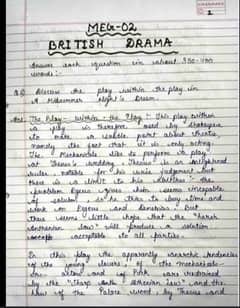 1
MEG-02
BRITISH DRAMA
Answer each question in about 350-400
words:-
Discuss the play within the play in
A Midsummer Night's Dream.
Ans. The Play- Within- the Play :- This play within
a play is therefore used by Shakespeare
to make a subtle point about theatre,
namely the fact that it is only acting.
The Mechanicals like to perform a play
at Theseus's wedding. Theseus is an enlightened
ruler notable for his wise judgement but
there is a limit to his abilities. The
problem Egeus gives him seems incapable
of solution so he tries to buy time and
work on Egeus and Demetrius. But
there seems little hope that the "harsh
Athenian law" will produce a solution
acceptable to all parties.
In this play the apparently anarchic tendencies
of the young lovers, of the mechanicals-
and of Puck are restrained
by the "sharp Athenian law" and the
law of the Palace Wood by Theseus and